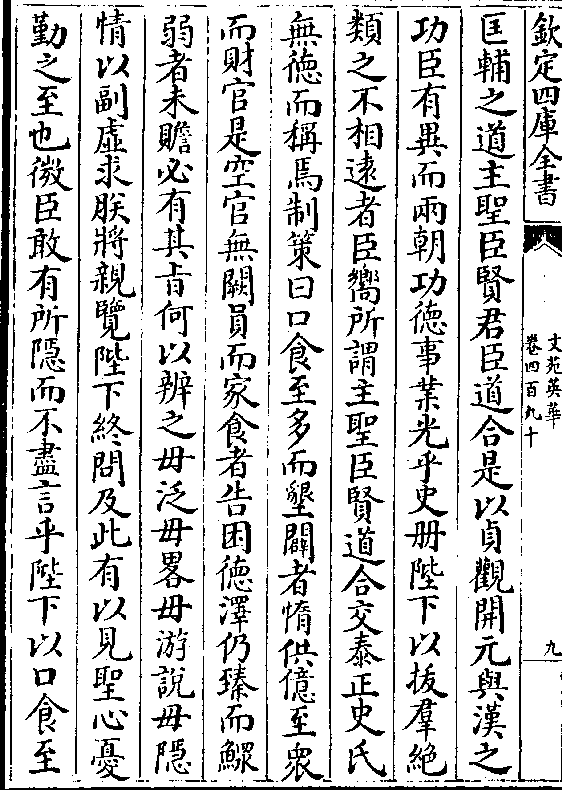 欽定四庫全書
文苑英華
卷四百九十
九
匡輔之道主聖臣賢君臣道合是以貞觀開元與漢之
功臣有異而兩朝功德事業光乎史册陛下以拔羣絶
類之不相逺者臣嚮所謂主聖臣賢道合交泰正史氏
無德而稱焉制策曰口食至多而墾闢者惰供億至衆
而財官是空官無闕員而家食者告困德澤仍臻而鰥
弱者未贍必有其旨何以辨之毋泛毋畧毋游說毋隱
情以副虛求朕將親覽陛下終問及此有以見聖心憂
勤之至也微臣敢有所隱而不盡言乎陛下以口食至